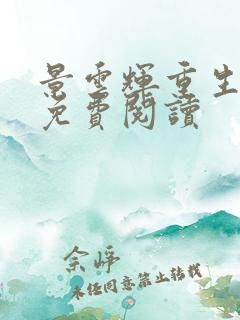 景雲輝重生
免費閱讀
佘崢
未經同意禁止轉載